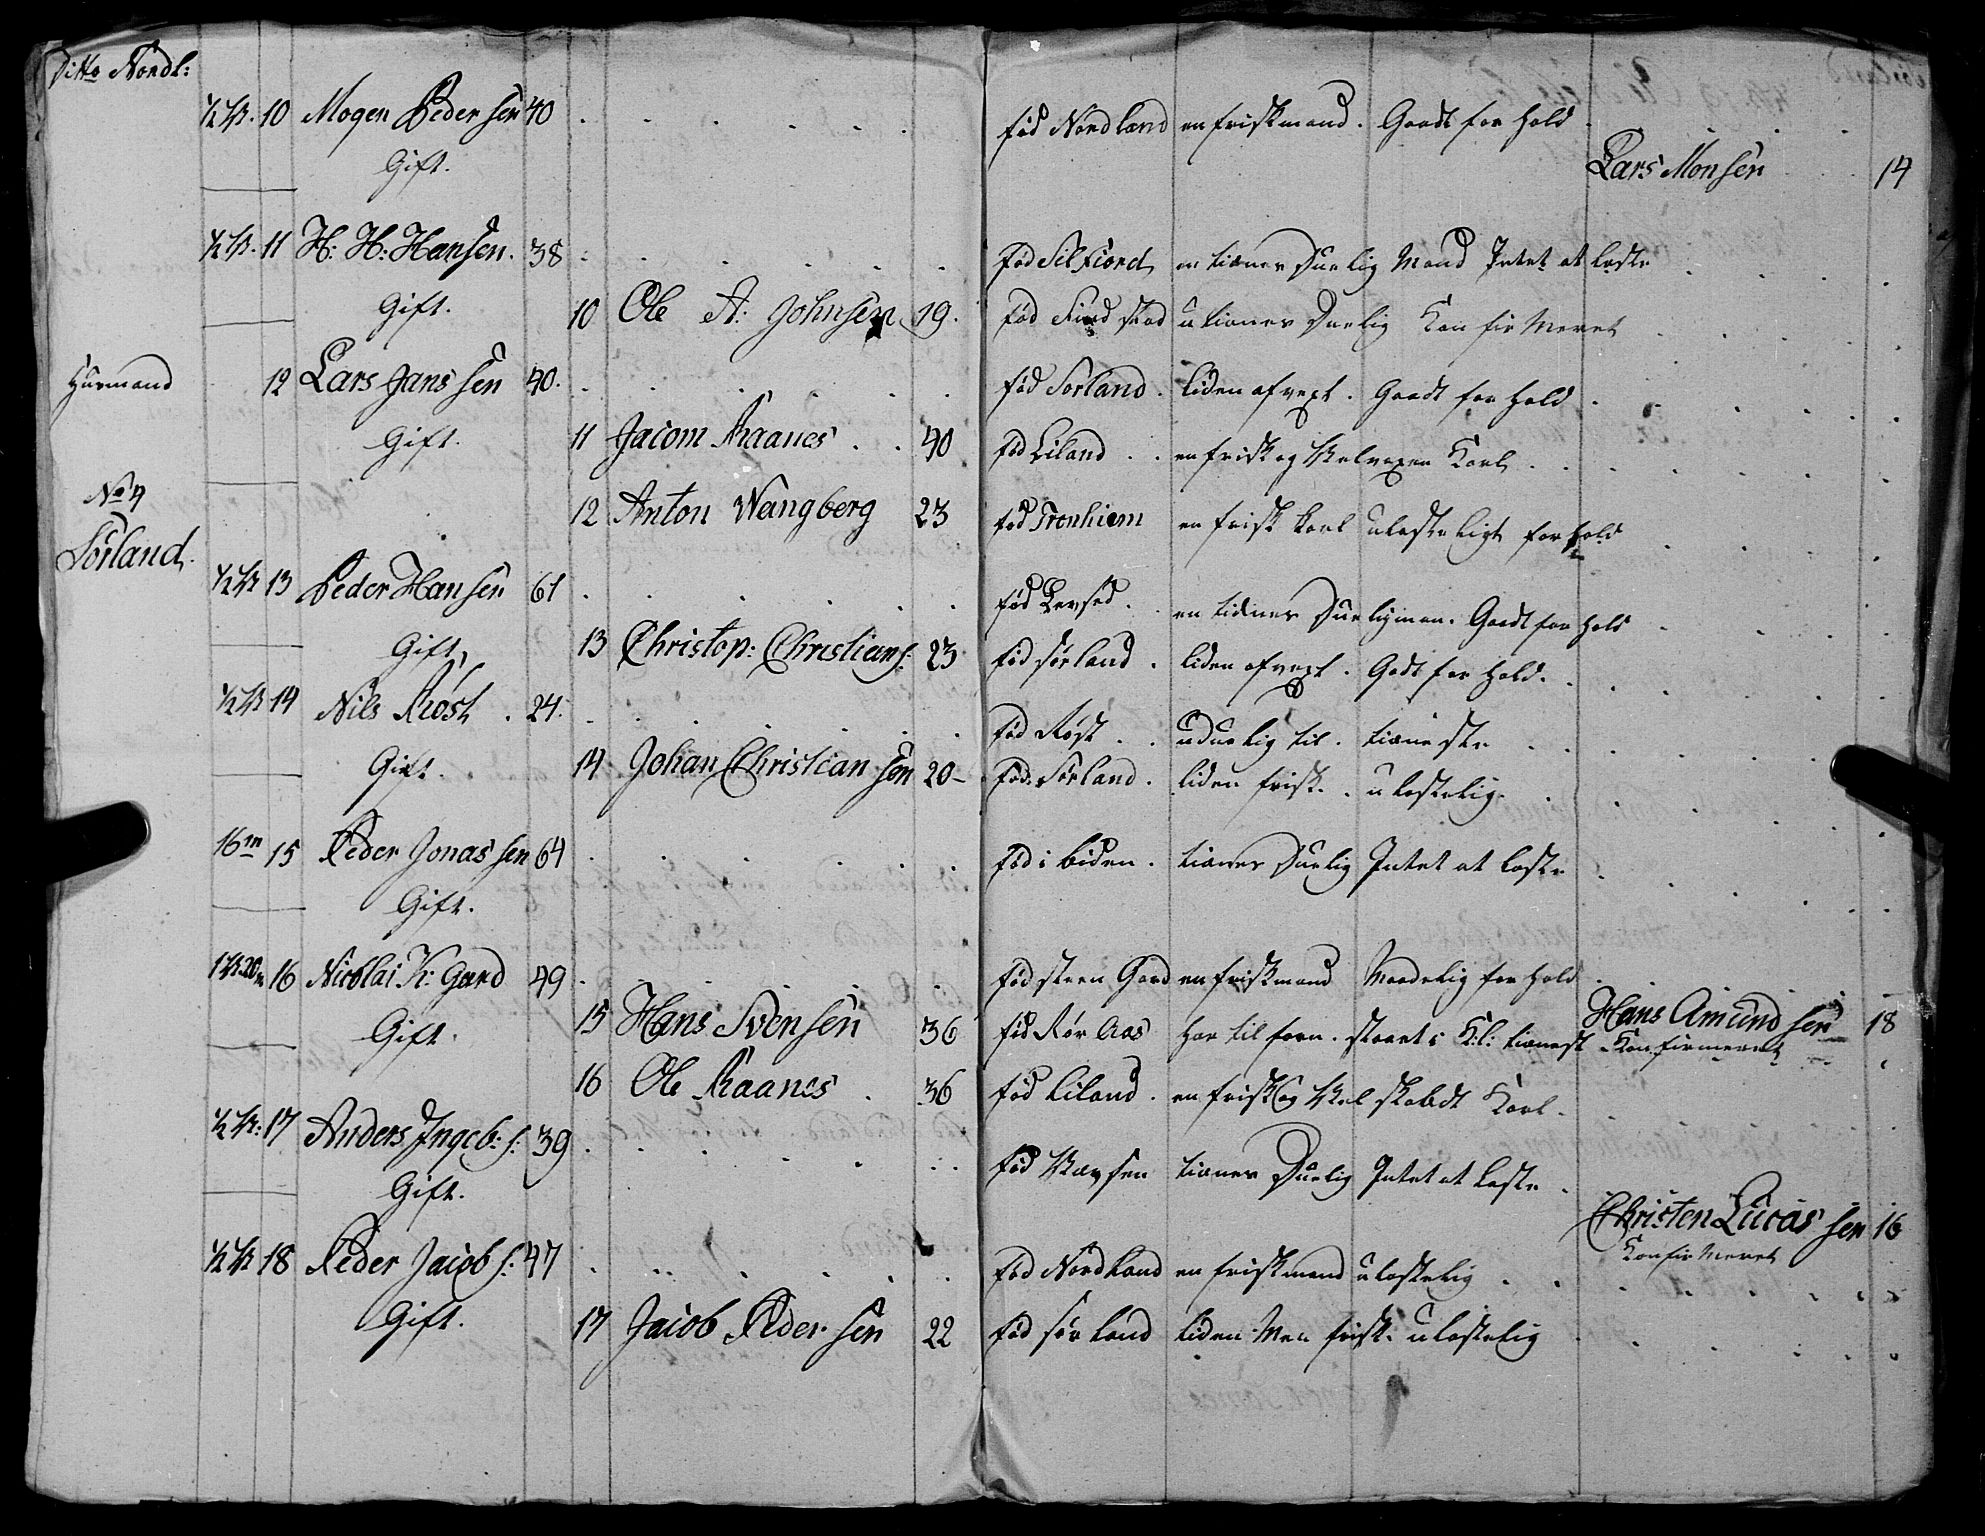 Ditto Nordl:
10 Mogen Pedersen 40 . . . . . . fød Nordland en frisk mand . Gaadt forhold .
Gift. Lars Monsen . . . 14
11 H: H: Hansen . 38 . . . . . . fød Sel Fiord en tiener Duelig Mand Intet at laste
Gift. 10 Ole A: Johnsen 19 . fød Duelig Konfirmeret
Husmand 12 Lars Janssen 40 . . . . . . fød Sorland . liden af vext . Gaadt forhold .
Gift. 11 Jacom Raanes . . 40 fød Liland . . en frisk og Velvoxen Karl .
No 4
Sörland. 12 Anton Wangberg 23 fød Tronhiem en frisk karl ulasteligt forhold
13 Peder Hansen 61 . . . . . . fød en tiener Duelig man . Gaadt forhold
Gift, 13 Christop: Christians: 23 fød sørland . liden af vext . Godt forhold .
14 Nils Røst . 24 . . . . . . fød Røst . . uduelig til . tieneste
Gift . 14 Johan Christiansen 20 – fød . Sørland . liden frisk . . ulastelig .
16 m 15 Peder Jonassen 64 . . . . . . fød i tiener Duelig Intet at laste
Gift .
16 Nicolai K: Gard 49 . . . . . . fød steen Gard en frisk mand Maadelig forhold
Gift . 15 Hans Svensen 36 fød Rør Aas Har til forn . staaet i K: l: tienest Hans Amundsen 18
Konfirmeret
16 Ole Raanes . 36 fød Liland . en frisk og Vel skabdt Karl .
17 Anders Ingeb: s: 39 . . . . . . fød tiener Duelig Intet at laste .
Gift . Christen Lucassen 16
Konfirmeret
18 Peder Jacob s: 47 . . . . . . fød Nordland en frisk mand ulastelig
Gift . 17 Jacob Pedersen 22 fød sør land liden Men frisk . ulastelig